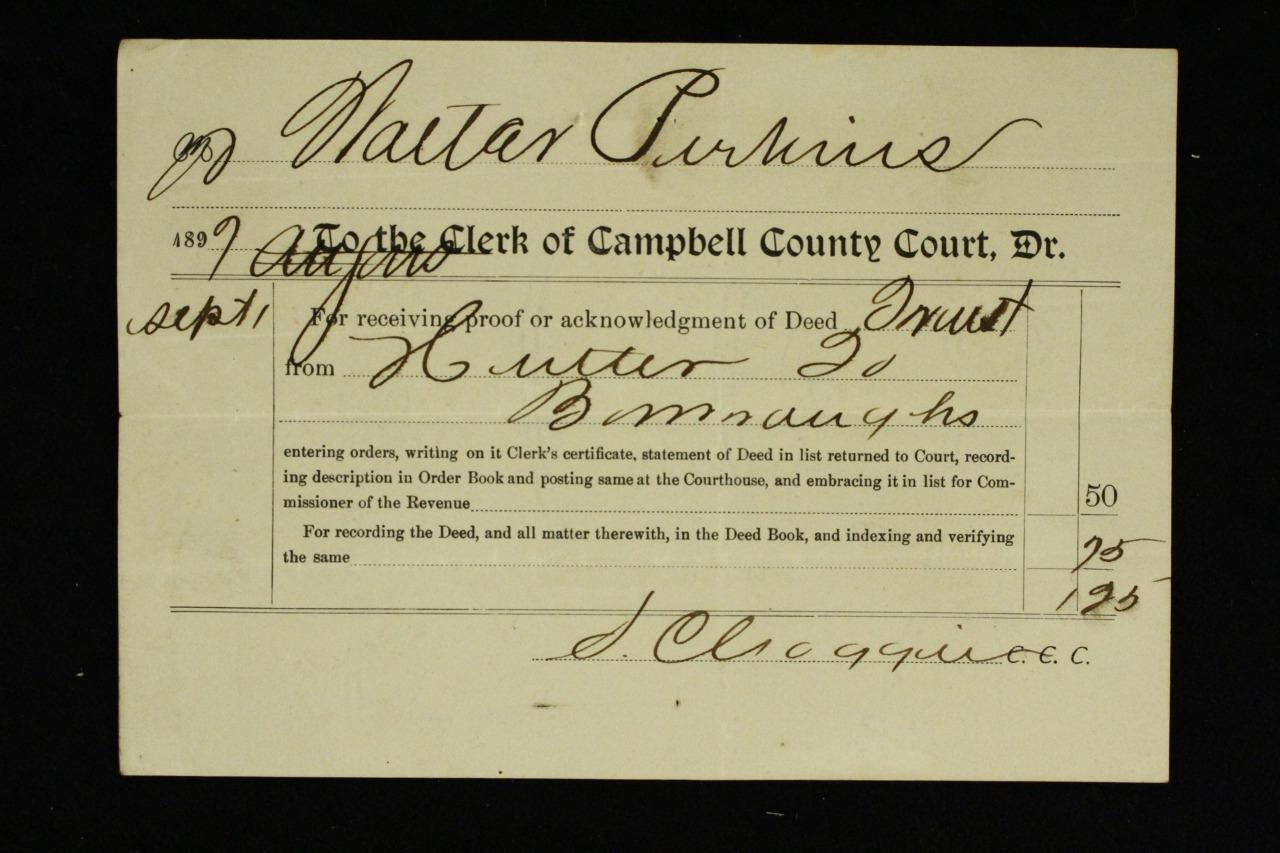 Waltar Perkins
1897 To the Clerk of Campbell County Court, Dr.
Sept 1 For receiving proof or acknowledgment of Deed Trust
from Hutter To
Borroughs
entering orders, writing on it Clerk's certificate, statement of Deed in list returned to Court, record-
ing description in Order Book and posting same at the Courthouse, and embracing it in list for Com-
missioner of the Revenue 50
For recording the Deed, and all matter therewith, in the Deed Book, and indexing and verifying
the same 75
1 25
S. C. C. C.